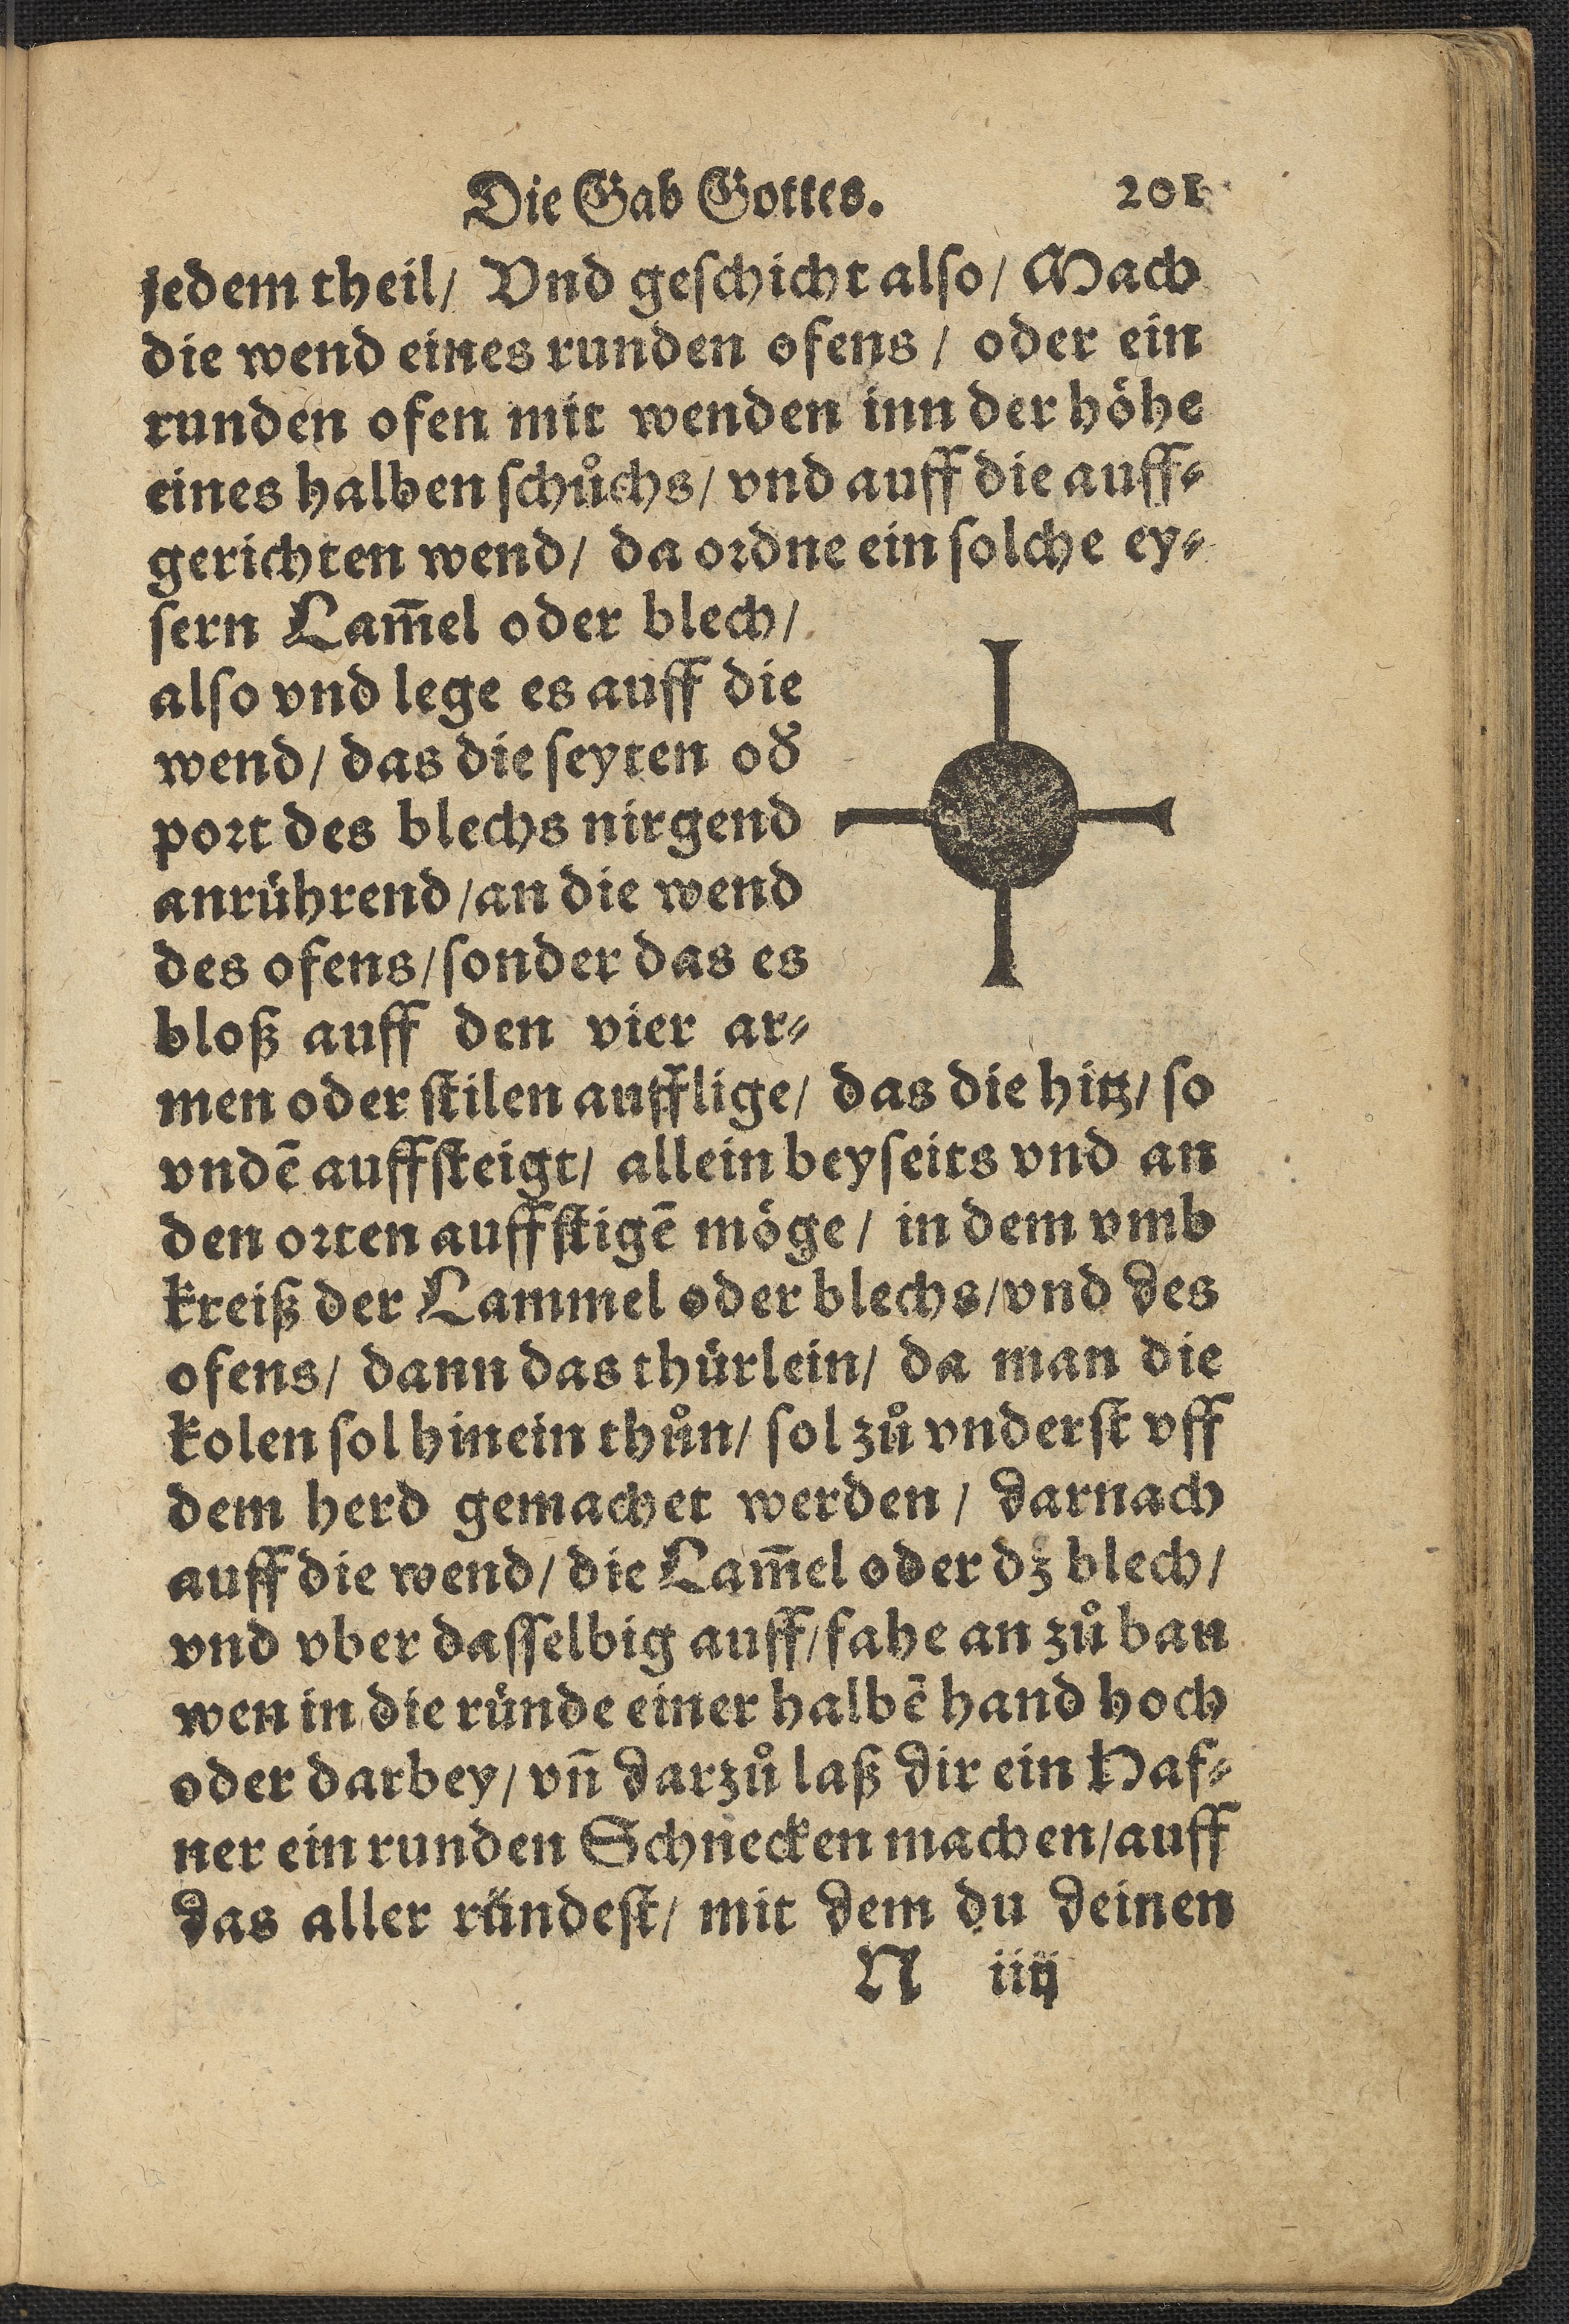 Die Gab Gottes. 201
jedem theil/ Vnd geſchicht alſo/ Mach
die wend eines runden ofens / oder ein
runden ofen mit wenden inn der höhe
eines halben ſchůchs/ vnd auff die auff⸗
gerichten wend/ da ordne ein ſolche ey⸗
ſern Lam̅el oder blech/
alſo vnd lege es auff die
wend/ das die ſeyten oď
port des blechs nirgend
anrührend/an die wend
des ofens/ſonder das es
bloß auff den vier ar⸗
men oder ſtilen aufflige/ das die hitz/ ſo
vndē auffſteigt/ allein beyſeits vnd an
den orten auffſtigē möge/ in dem vmb
kreiß der Lammel oder blechs/vnd des
ofens/ dann das thürlein/ da man die
kolen ſol hinein thůn/ ſol zů vnderſt vff
dem herd gemachet werden/ darnach
auff die wend/ die Lam̅el oder dz blech/
vnd vber daſſelbig auff/fahe an zů bau
wen in die ründe einer halbē hand hoch
oder darbey/ vn̅ darzů laß dir ein Haf⸗
ner ein runden Schnecken machen/auff
das aller ründeſt/ mit dem du deinen
N iiij